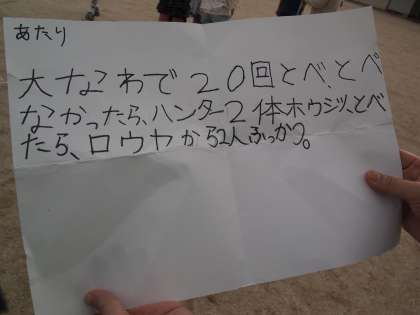 あたり
大なわで20回とべ、とべ
なかったら、ハンター2体ホウシツ、とべ
たら、ロウヤから2人ふっかつ。